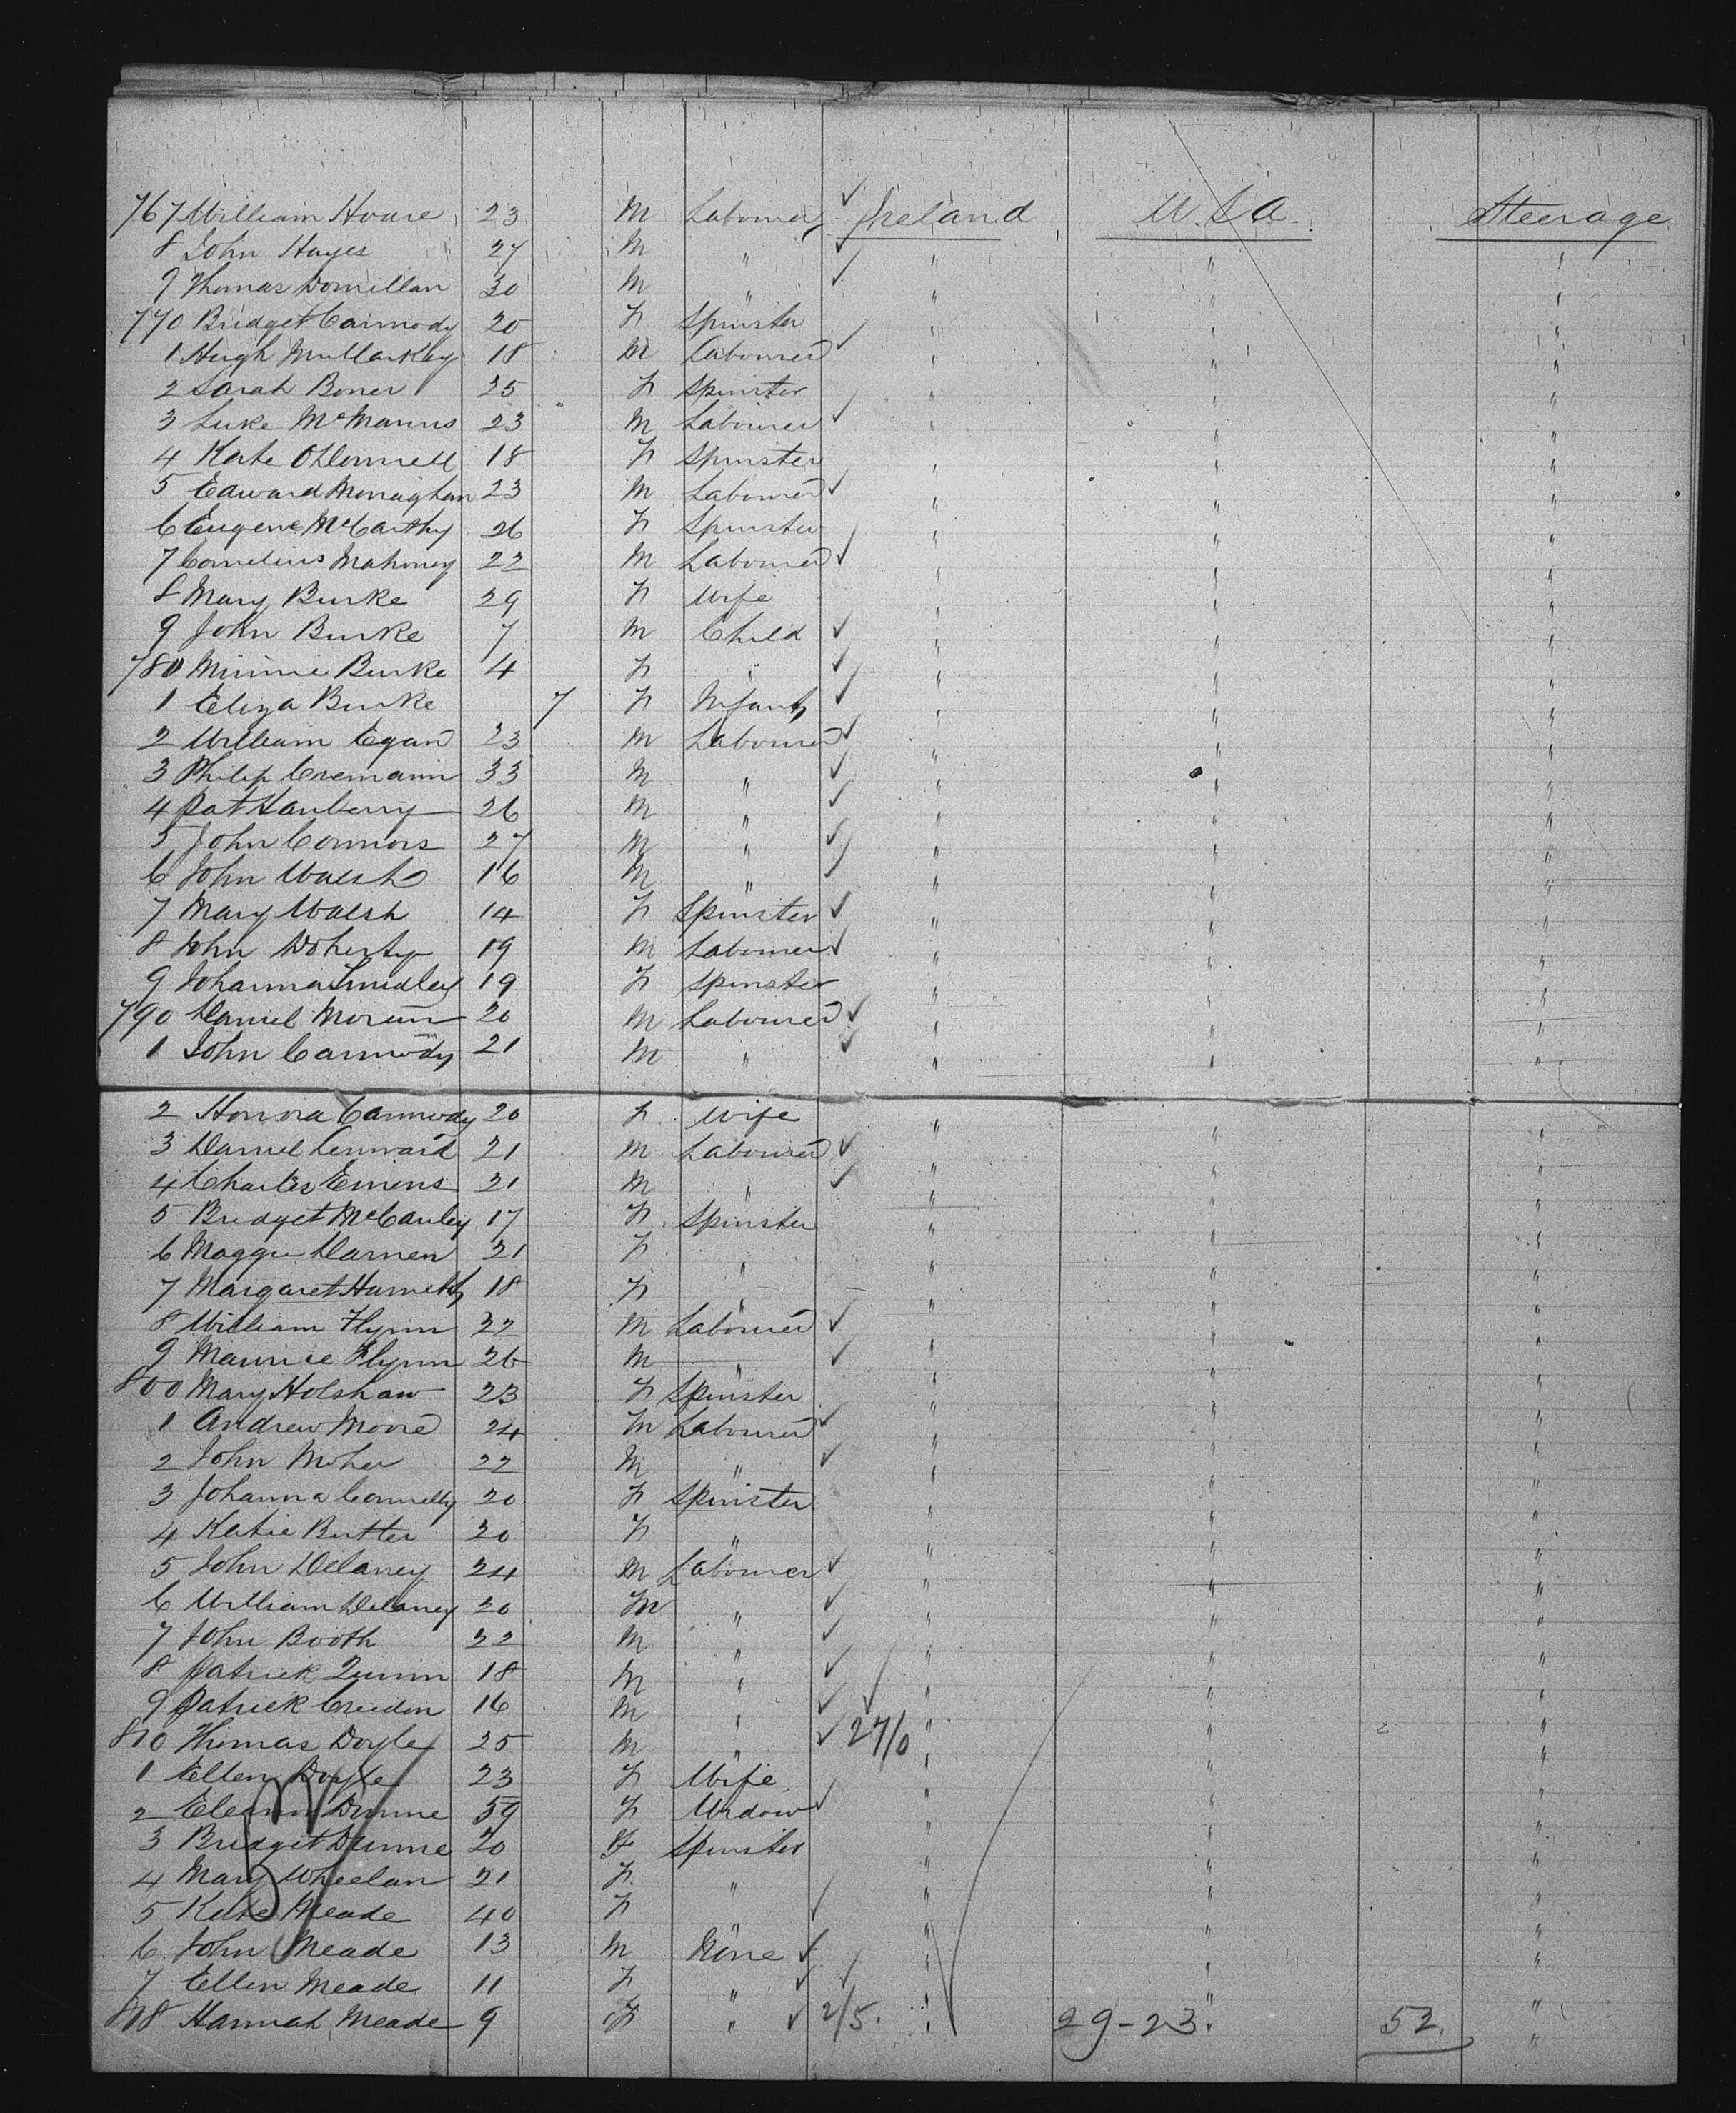 767 William Hoare 23 M Labourer ✓ Ireland U.S.A. Steerage
8 John Hayes 27 M " ✓ " " "
9 Thomas Donnellan 30 M " ✓ " " "
770 Bridget Carmody 20 F Spinster " " "
1 Hugh Mullarkey 18 M Labourer ✓ " " "
2 Sarah Boner 25 F Spinster " " "
3 Luke McManus 23 M Labourer ✓ " " "
4 Kate O'Donnell 18 F Spinster " " "
5 Edward Monaghan 23 M Labourer ✓ " " "
6 Eugene McCarthy 26 F Spinster " " "
7 Cornelius Mahoney 22 M Labourer ✓ " " "
8 Mary Burke 29 F Wife " " "
9 John Burke 7 M Child ✓ " " "
780 Minnie Burke 4 F " ✓ " " "
1 Eliza Burke 7 F Infant ✓ " " "
2 William Egan 23 M Labourer ✓ " " "
3 Philip 33 M " ✓ " " "
4 Pat Hanberry 26 M " ✓ " " "
5 John Connors 27 M " ✓ " " "
6 John Walsh 16 M " ✓ " " "
7 Mary Walsh 14 F Spinster ✓ " " "
8 John Doherty 19 M Labourer ✓ " " "
9 Johanna 19 F Spinster " " "
790 Daniel 20 M Labourer ✓ " " "
1 John Carmody 21 M " ✓ " " "
2 Honora Carmody 20 F Wife " " "
3 Daniel 21 M Labourer ✓ " " "
4 Charles 21 M " ✓ " " "
5 Bridget McCauley 17 F Spinster " " "
6 Maggie 21 F " " " "
7 Margaret Harnett 18 F " " " "
8 William Flynn 22 M Labourer ✓ " " "
9 Maurice Flynn 26 M " ✓ " " "
800 Mary Holshaw 23 F Spinster " " "
1 Andrew Moore 24 M Labourer ✓ " " "
2 John Moher 22 M " ✓ " " "
3 Johanna Connelly 20 F Spinster " " "
4 Katie Butler 20 F " " " "
5 John Delaney 24 M Labourer ✓ " " "
6 William Delaney 20 M " ✓ " " "
7 John Booth 22 M " ✓ " " "
8 Patrick Quinn 18 M " ✓ " " "
9 Patrick Creedon 16 M " ✓ " " "
810 Thomas Doyle 25 M " ✓ 27/0 " " "
1 Ellen Doyle 23 F Wife " " "
2 Eleanor Dunne 59 F Widow ✓ " " "
3 Bridget Dunne 20 F Spinster " " "
4 Mary Wheelan 21 F " " " "
5 Kate Meade 40 F " ✓ " " "
6 John Meade 13 M None ✓ " " "
7 Ellen Meade 11 F " ✓ " " "
818 Hannah Meade 9 F " ✓ 2/5. " 29-23. 52. "